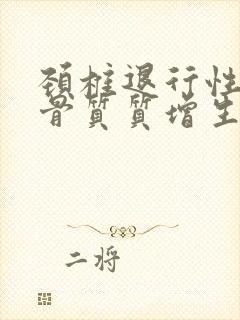 颈椎退行性
骨质质增生
二将